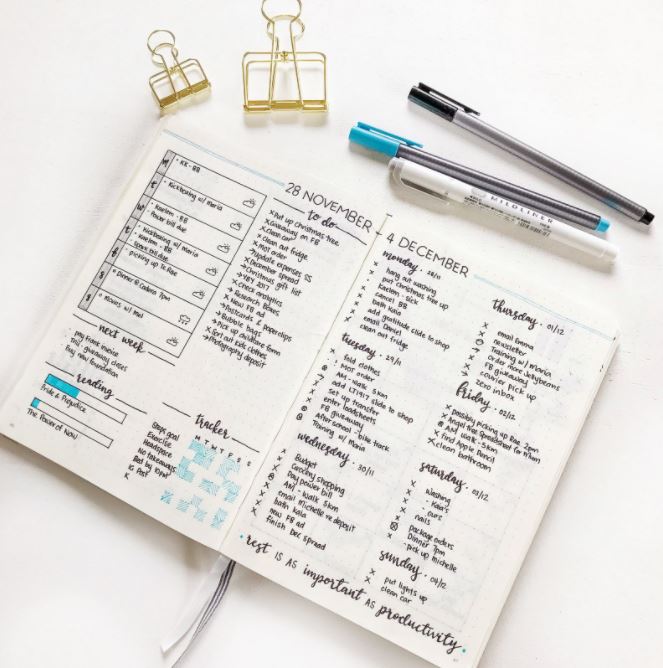 28 NOVEMBER
M
• KK - BB
T
• Kickboxing w/ Maria
W
• Kaelem - BB
• Power bill due
T
• Kickboxing w/ Maria
• Kaelem - BB
• Spark bill due
F
• picking up 12 Rae
S
• Dinner @ Cabana 7pm
S
• Movies w/ Mel
next week
pay front invoice
FB giveaway closes
Buy new foundation
reading
Pride & Prejudice
The Power of Now
to do
x Put up christmas tree
x Giveaway on FB
x Clean car
x Clean out fridge
x Mot order
update expenses SS
x December spread
→ Christmas gift list
→ YBY 2017
x Check analytics
→ Research Boxes
x New FB ad
→ Postcards & paperclips
→ Bubble bags
x Pick up childcare form
x Sort out kids clothes
→ Photography deposit
tracker
M T W T F S S
Steps goal
Exercise
Headspace
No takeaways
Bed by 10pm
IG Post
4 DECEMBER
monday • 28/11
x hang out washing
x put christmas tree up
x Kaelem - sick
x cancel BB
x bath Kaia
x add gratitude slide to shop
x email Daniel
x clean out fridge
tuesday • 29/11
x fold clothes
x Mot order
AM - walk 5km
x add LT1917 slide to shop
x Set up transfer
x enter loadsheets
x FB giveaway
After school - bike track
Training w/ Maria
wednesday • 30/11
x Budget
x Grocery shopping
x Pay power bill
AM - walk 5km
x email Michelle re deposit
x bath Kaia
x New FB ad
x finish Dec spread
thursday • 01/12
x email Emma
x newsletter
Training w/ Maria
x order more Jellybeans
x FB giveaway
x courier pick up
x zero inbox
friday • 02/12
x possibly picking up Rae 2pm
x Angel tree Spreadsheet for Mum
Kick-Box
x find Apple Pencil
x clean bathroom
saturday • 03/12
x Washing
x - Kaia's
x - ours
x nails
x package orders
Dinner 7pm
- pick up Michelle
sunday • 04/12
x put lights up
x clean car
• rest IS AS important AS productivity •
MILDLINER